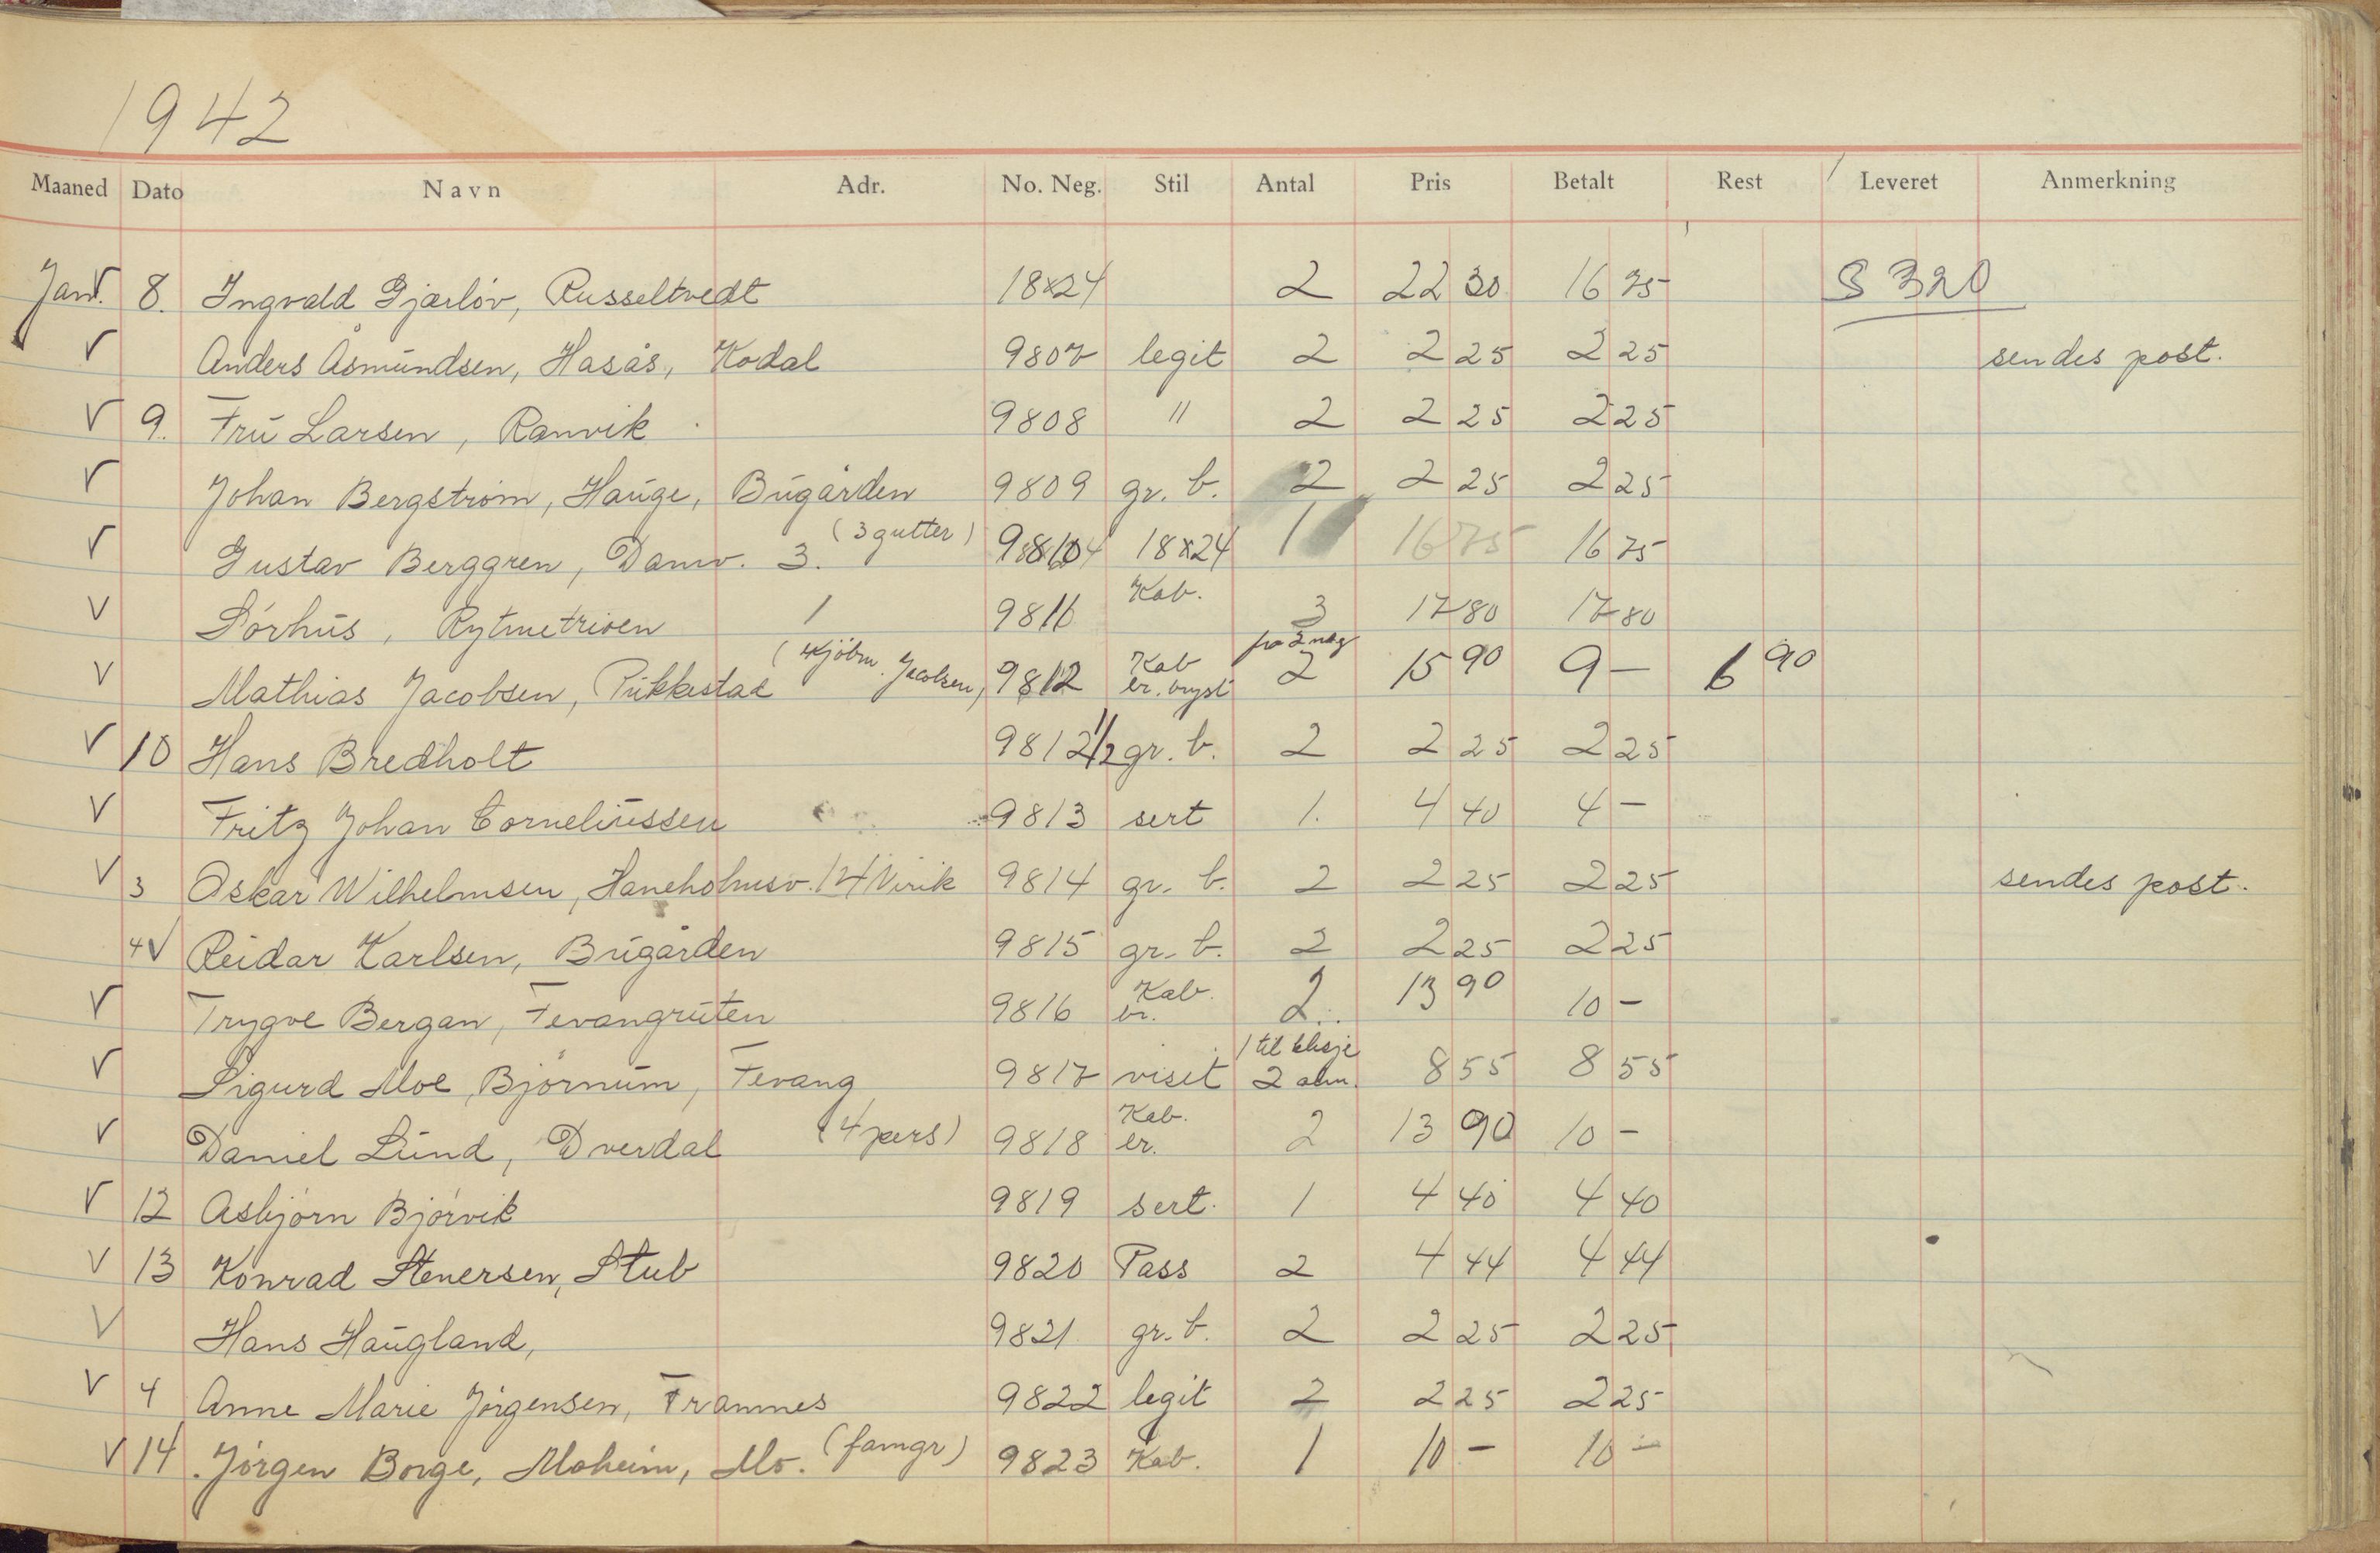 1942
Maaned Dato Navn Adr. No. Neg. Stil Antal Pris Betalt Rest Leveret Anmerkning
Jan. V 8. Ingvald Gjærløv, Russeltvedt 18x24 2 22 30 16 75 S 320
V Anders Åsmundsen, Hasås, Kodal 9807 legit 2 2 25 2 25 sendes post.
V 9. Fru Larsen, Ranvik 9808 " 2 2 25 2 25
V Johan Bergstrøm, Hauge, Bugården 9809 gr. b. 2 2 25 2 25
V Gustav Berggren, Damv. 3. (3 gutter) 9810 18x24 1 16 75 16 75
V Sørhus, Rytmetrioen 9811 Kab. 3 17 80 17 80
V Mathias Jacobsen, Pukkestad (Kjøbm. Jacobsen) 9812 Kab br. bryst på 2 neg 2 15 90 9 - 6 90
V 10 Hans Bredholt 9812 1/2 gr. b. 2 2 25 2 25
V Fritz Johan Corneliussen 9813 sert 1. 4 40 4 -
V 3 Oskar Wilhelmsen, Haneholmsv. 14 Virik 9814 gr. b. 2 2 25 2 25 sendes post.
4 V Reidar Karlsen, Bugården 9815 gr. b. 2 2 25 2 25
V Trygve Bergan, Fevangruten 9816 Kab. br. 2 13 90 10 -
V Sigurd Moe, Bjørnum, Fevang 9817 viset 1 til klisje 2 alm. 8 55 8 55
V Daniel Lund, Dverdal (4 pers) 9818 Kab. br. 2 13 90 10 -
V 12 Asbjørn Bjørvik 9819 sert. 1 4 40 4 40
V 13 Konrad Stenersen, Stub 9820 Pass 2 4 44 4 44
V Hans Haugland, 9821 gr. b. 2 2 25 2 25
V 4 Anne Marie Jørgensen, Framnes 9822 legit 2 2 25 2 25
V 14 Jørgen Borge, Moheim, Mo. (famgr) 9823 Kab. 1 10 - 10 -